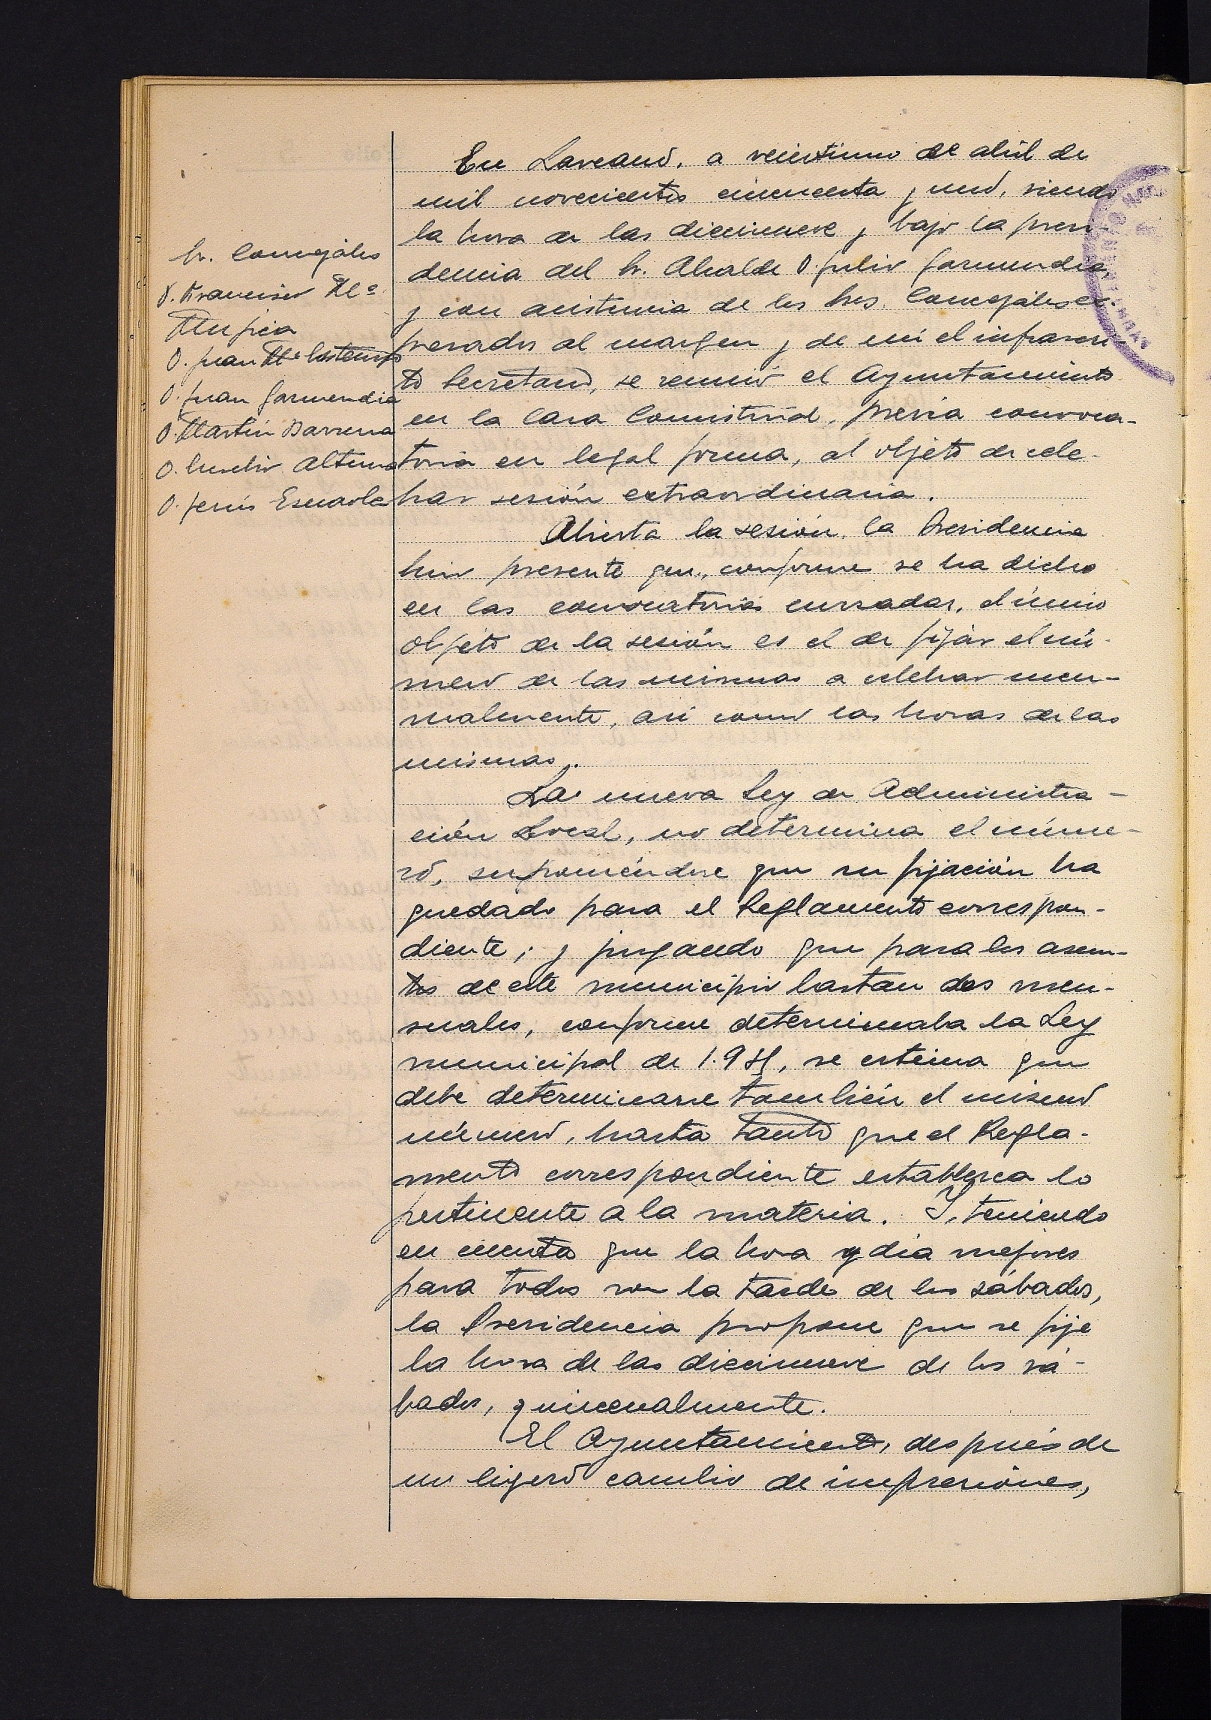 Sr. Concejales
D. Francisco Mª
Mugica
D. Juan Mª
D. Juan Garmendia
D. Martín Barrena
D. Eusebio Altuna
D. Jesús Esnaola
En Lazcano, a veintiuno de abril de
mil novecientos cincuenta y uno, siendo
la hora de las diecinueve y bajo la presi-
dencia del Sr. Alcalde D. Julio Garmendia,
y con asistencia de los Sres. Concejales ex-
presados al margen y de mi el infrascri-
to Secretario, se reunió el Ayuntamiento
en la Casa Consistorial, previa convoca-
toria en legal forma, al objeto de cele-
brar sesión extraordinaria.
Abierta la sesión, la Presidencia
hizo presente que, conforme se ha dicho
en las convocatorias cursadas, el único
objeto de la sesión es el de fijar el nú-
mero de las mismas a celebrar men-
sualmente, así como las horas de las
mismas.
La nueva Ley de Administra-
ción Local, no determina el núme-
ro, suponiéndose que su fijación ha
quedado para el Reglamento correspon-
diente; y juzgando que para los asun-
tos de este municipio bastan dos men-
suales, conforme determinaba la Ley
municipal de se estima que
debe determinarse también el mismo
número, hasta tanto que el Regla-
mento correspondiente establezca lo
pertinente a la materia. Y, teniendo
en cuenta que la hora y dia mejores
para todos son la tarde de los sábados,
la Presidencia propone que se fije
la hora de las diecinueve de los sá-
bados, quincenalmente.
El Ayuntamiento, después de
un ligero cambio de impresiones,